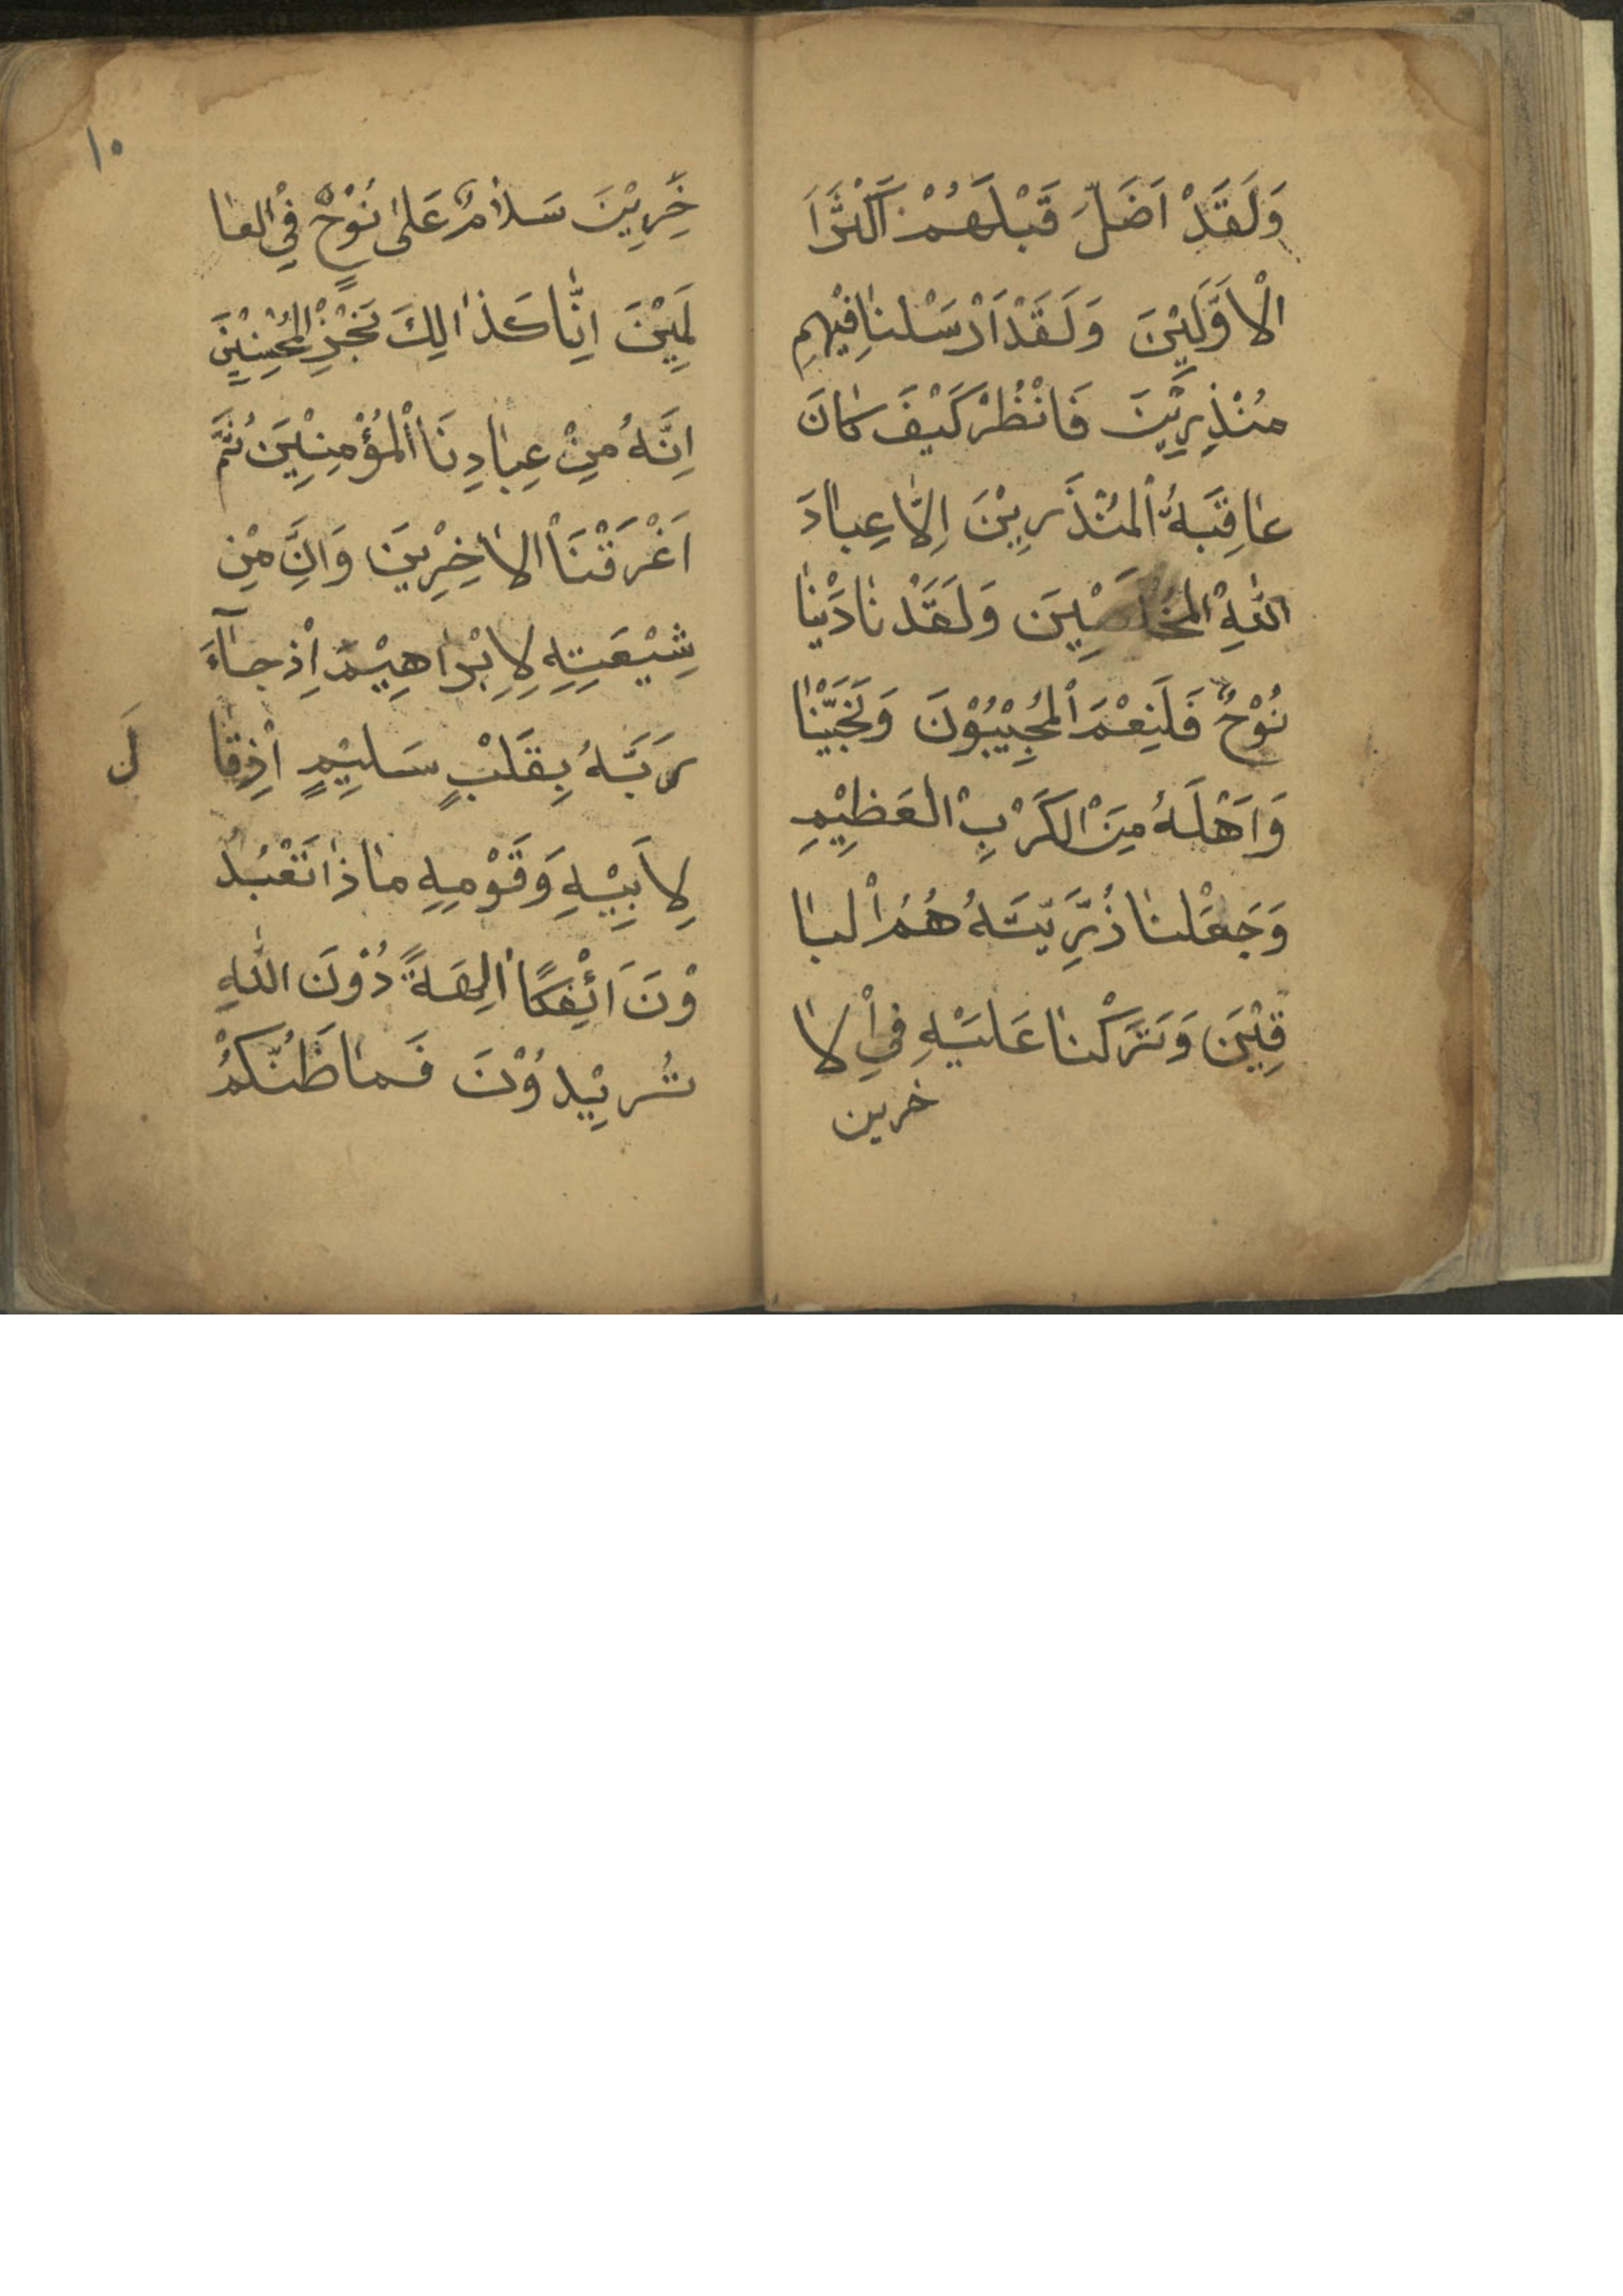 وَلَقَدْ اَضَلَّ قَبْلَهُمْ اَكْثَرُا
الْاَوَّلَيْنَ وَلَقَدْ اَرْسَلْنٰافِيْهِمِ
مُنْذِرِيْنَ فَانْظُرْ كَيْفَ كٰانَ
عٰاقِبَةُ الْمُنْذَرِيْنَ اِلّٰا عِبٰادَ
اللّٰهِ الْمُخْلَصِيْنَ وَلَقَدْ نٰادَيْنٰا
نُوْحٌ فَلَنِعْمَ الْمُجِيْبُوْنَ وَنَجَّيْنٰا
وَاَهْلَهُ مِنَ الْكَرْبِ الْعَظِيْمِ
وَجَعَلْنٰا ذُرِّيَّتَهُ هُمُ الْبٰا
قِيْنَ وَتَرَكْنٰا عَلَيْهِ فِي الْاٰ
خرين
١٠
خِرِيْنَ سَلاٰمٌ عَلىٰ نُوْحٍ فِي الْعٰا
لَمِيْنَ اِنّٰا كَذٰالِكَ نَجْزِ الْمُحْسِنِيْنَ
اِنَّهُ مِنْ عِبٰادِنَا الْمُؤْمِنِيْنَ ثُمَّ
اَغْرَقْنَا الْاٰخِرِيْنَ وَاِنَّ مِنْ
شِيْعَتِهِ لِاِبْرٰاهِيْمَ اِذْ جٰاۤءَ
رَبَّهُ بِقَلْبٍ سَلِيْمٍ اِذْ قٰا
لَ
لِاَبِيْهِ وَقَوْمِهِ مٰا ذٰا تَعْبُدُ
وْنَ اَئِفْكًا اٰلِهَةً دُوْنَ اللّٰهِ
تُرِيْدُوْنَ فَمٰا ظَنُّكُمْ